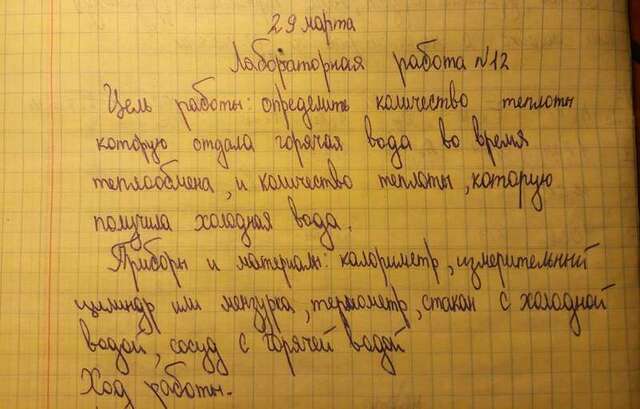 29 марта
Лабораторная работа №12
Цель работы: определить количество теплоты
которую отдала горячая вода во время
теплообмена, и количество теплоты, которую
получила холодная вода.
Приборы и материалы: калориметр, измерительный
цилиндр или мензурка, термометр, стакан с холодной
водой, сосуд с горячей водой
Ход работы.